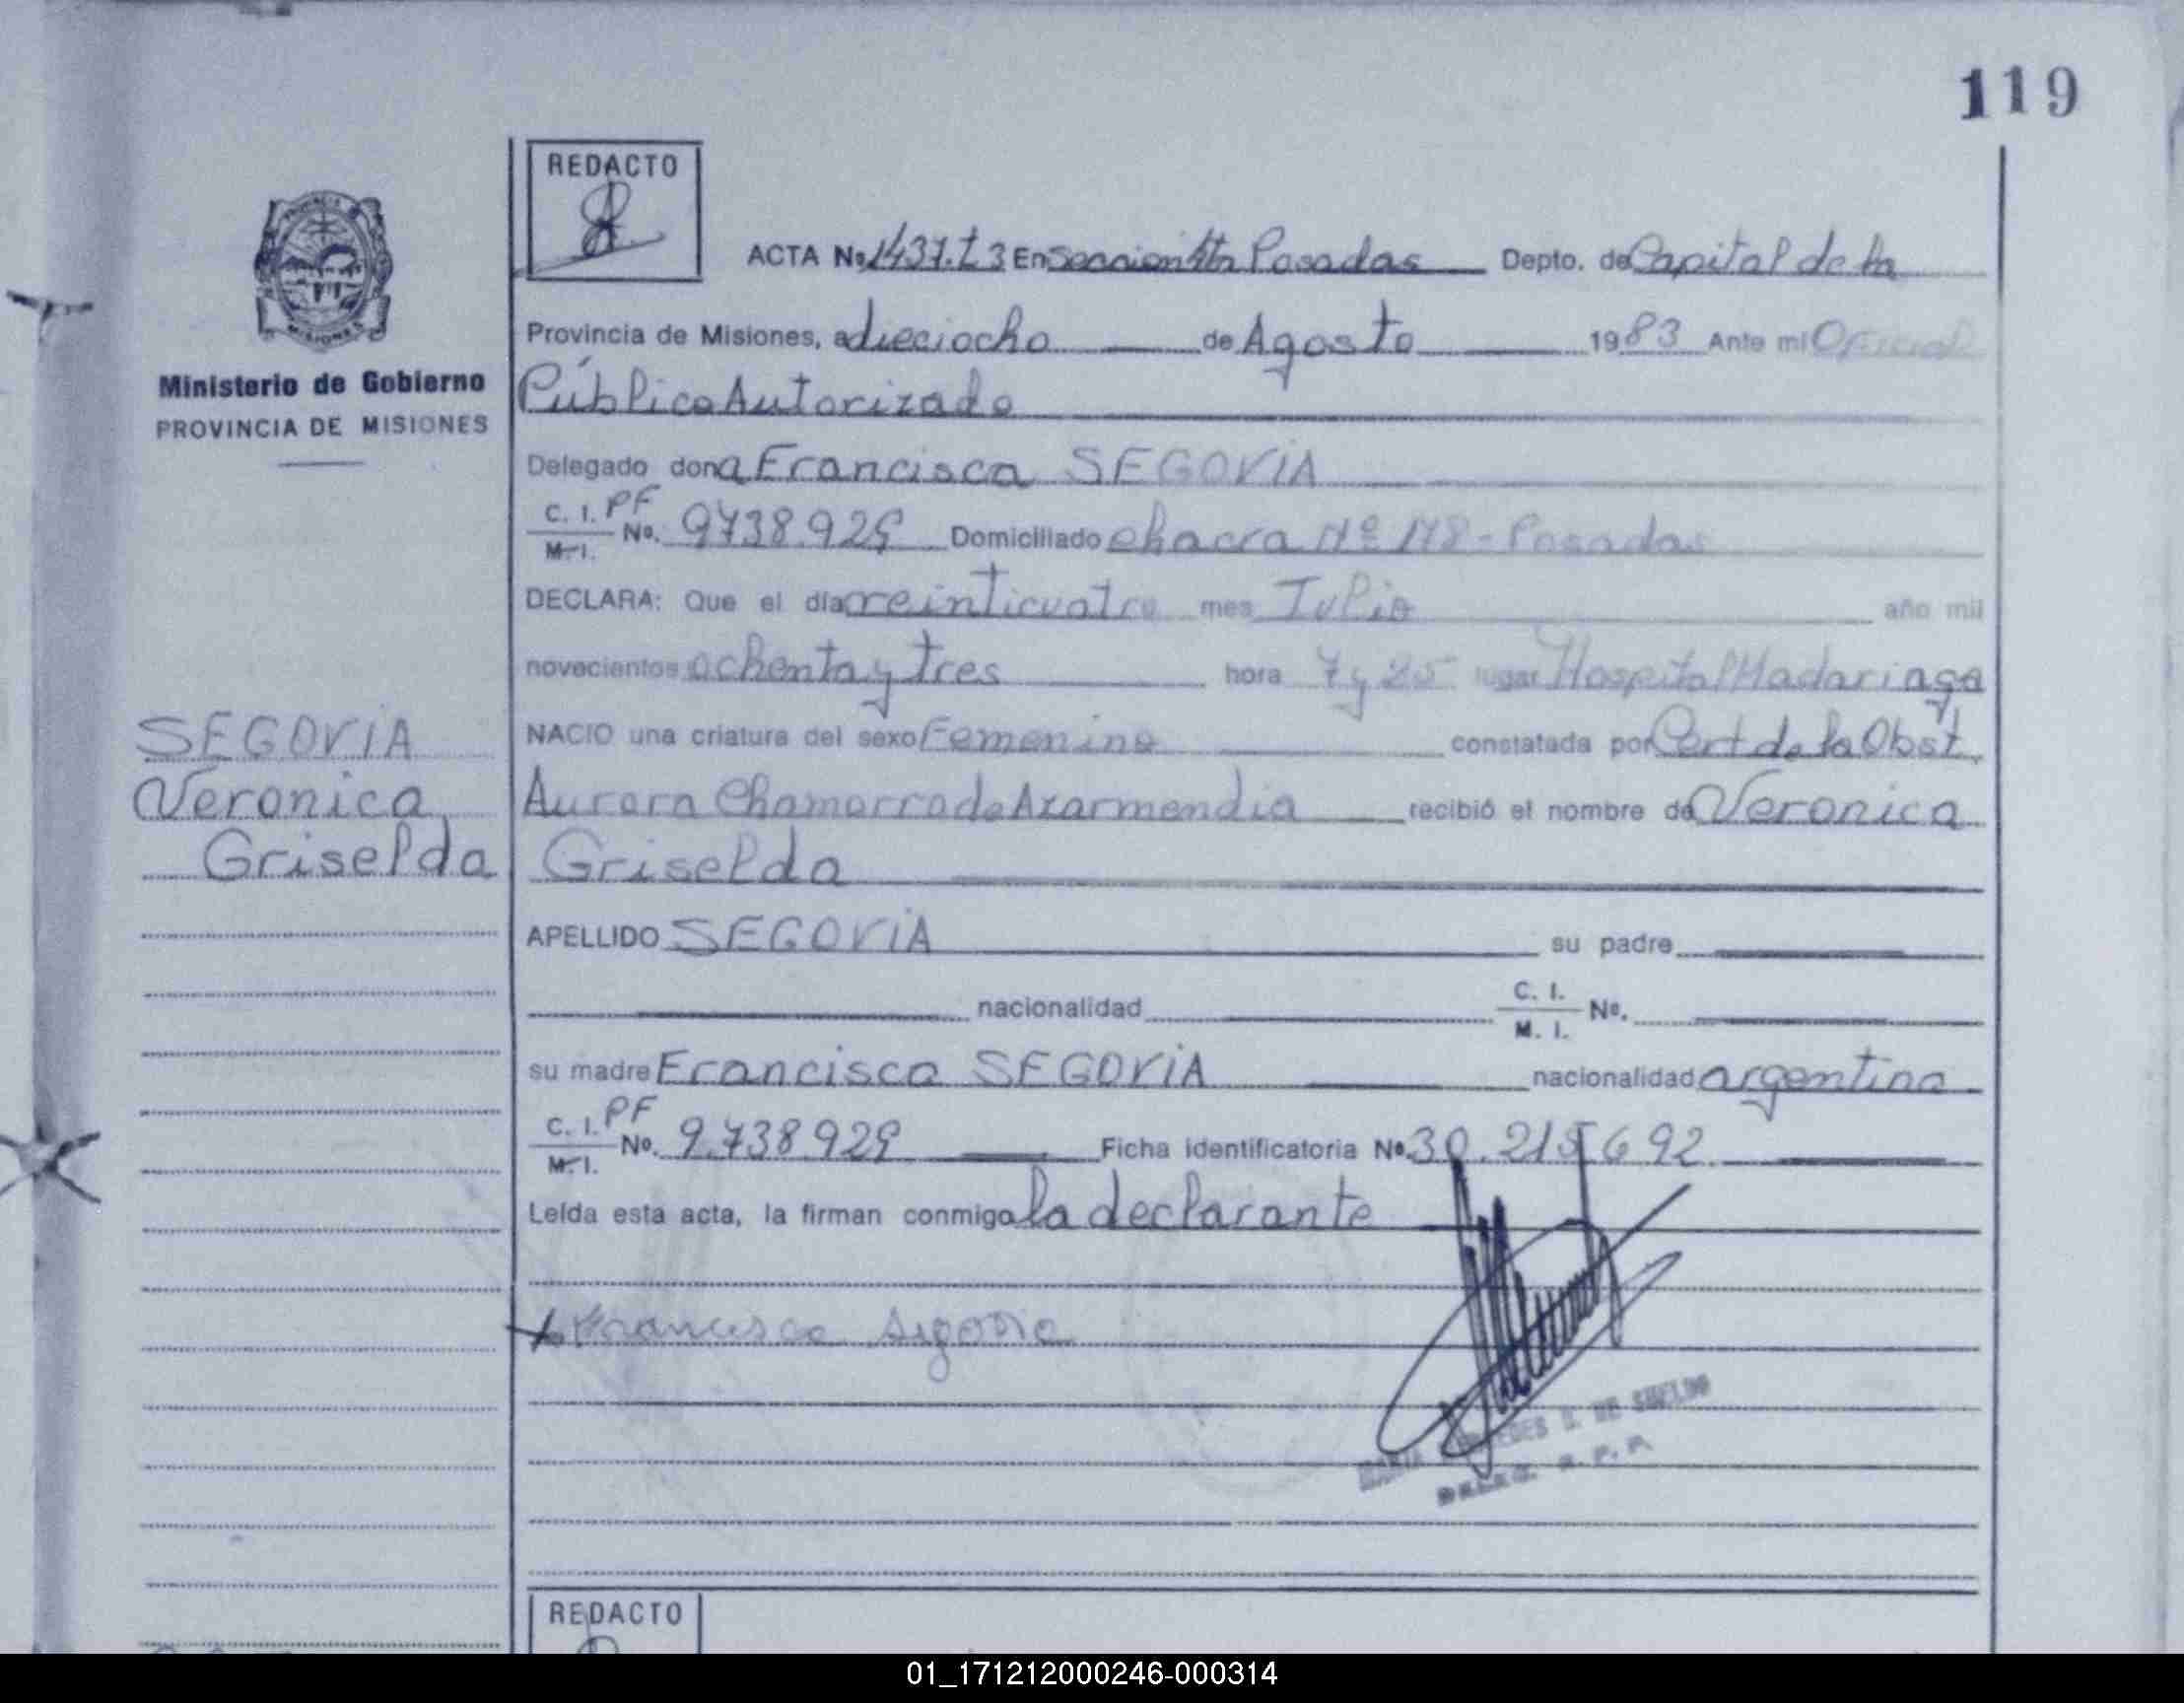 119
REDACTO
ACTA No. 1437. T 3 En Seccion 4ta Posadas Depto. de Capital de la
Provincia de Misiones, a dieciocho de Agosto 1983 Ante mi Oficial
Ministerio de Gobierno
PROVINCIA DE MISIONES
Público Autorizado
Delegado dona Francisca SEGOVIA
C. I. PF
M. I. No. 9738.929 Domiciliado chacra Nº 178 - Posadas
DECLARA: Que el día veinticuatro mes Julio año mil
novecientos ochenta y tres hora 7 y 25 lugar Hospital Madariaga
SEGOVIA
Veronica
Griselda
NACIO una criatura del sexo Femenino constatada por Cert de la Obst.
Aurora Chamorro de Azarmendia recibió el nombre de Veronica
Griselda
APELLIDO SEGOVIA su padre
nacionalidad C. I. M. I. No.
su madre Francisca SEGOVIA nacionalidad argentina
C. I. PF
M. I. No. 9.738.929 Ficha identificatoria No. 30.215.692
Leída esta acta, la firman conmigo la declarante
Francisca Segovia
DE SUELDO
REDACTO
01_171212000246-000314